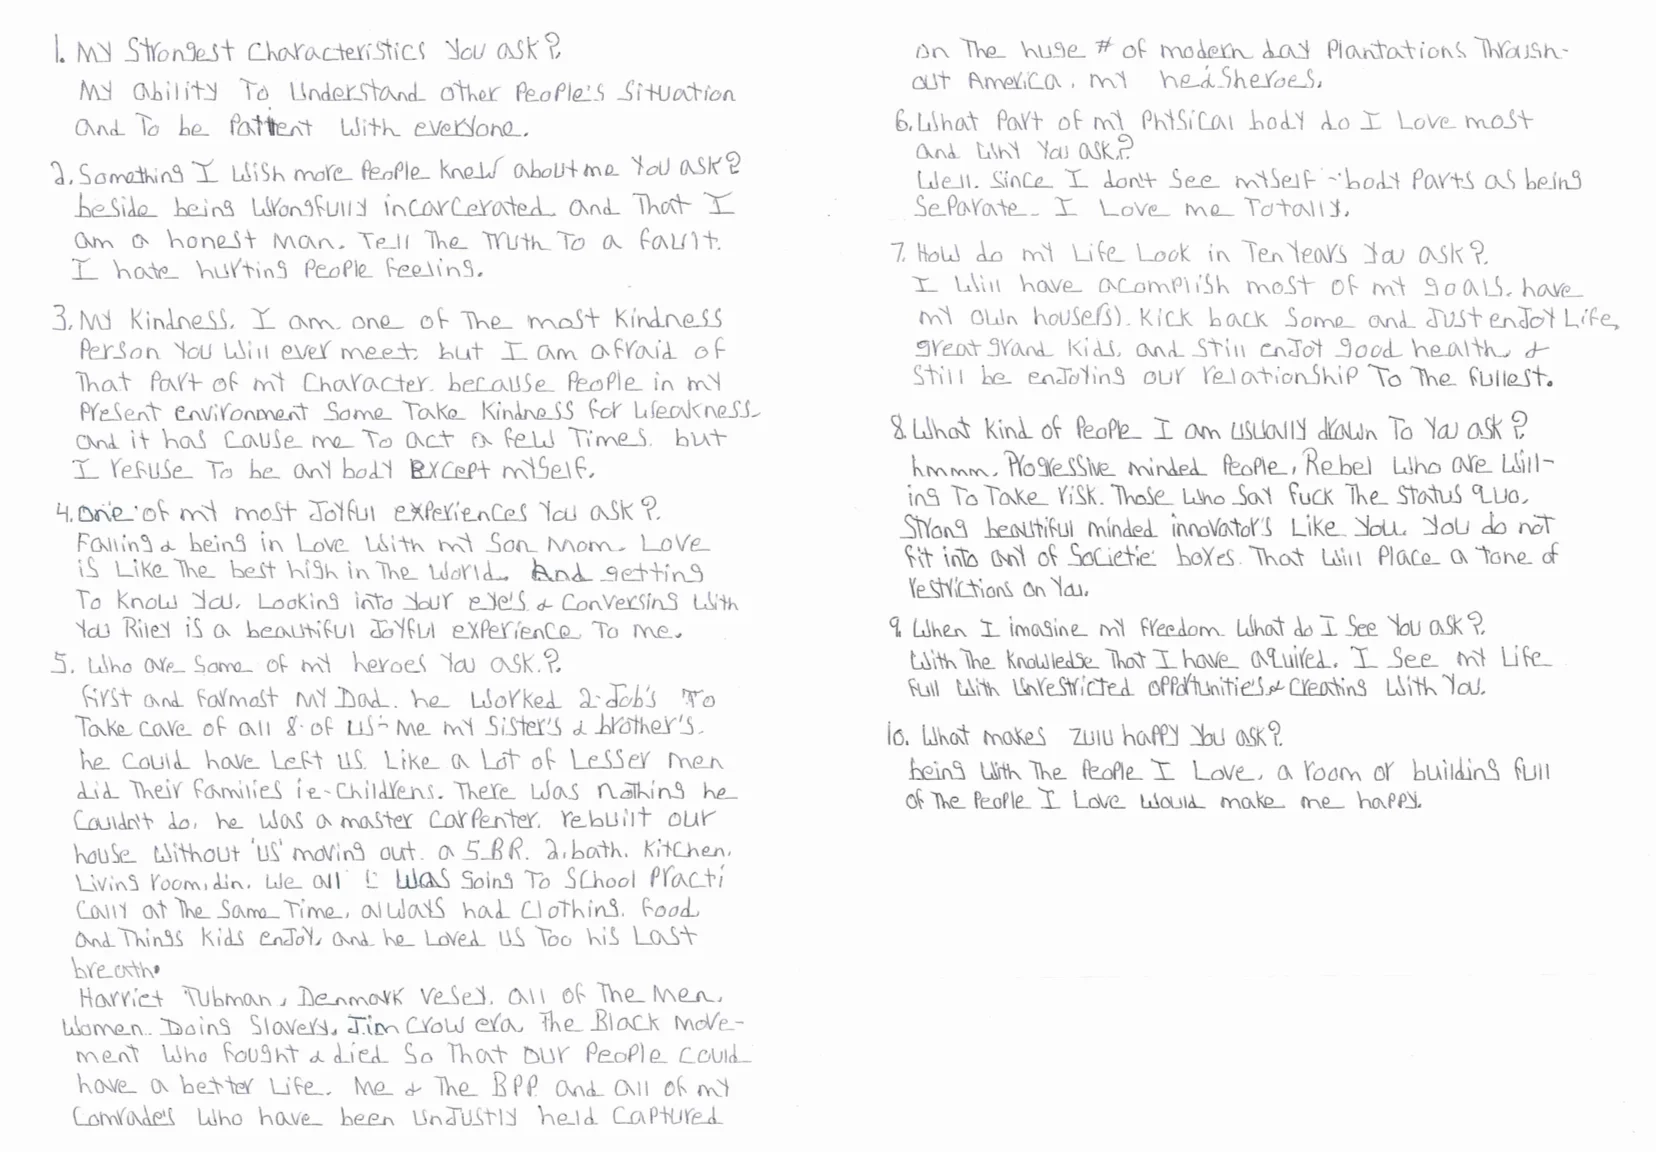 1. My Strongest Characteristics You ask?
My ability To Understand other People's Situation
and To be Patient With everyone.
2. Something I Wish more People Knew about me You ask?
beside being Wrongfully incarcerated and That I
am a honest Man. Tell The Truth To a fault.
I hate hurting People feeling.
3. My Kindness. I am one of The most Kindness
Person You Will ever meet. but I am afraid of
That Part of my Character. because People in my
Present environment Some Take Kindness for Weakness
and it has Cause me To act a few Times. but
I refuse To be any body Except myself.
4. One of my most Joyful experiences You ask?
Falling & being in Love With my Son Mom. Love
is Like The best high in The World. And getting
To Know You. Looking into Your eye's & Conversing With
You Riley is a beautiful Joyful experience To me.
5. Who are Some of my heroes You ask.?
first and formost My Dad. he Worked 2-Job's To
Take care of all 8 of us- Me my Sister's & brother's.
he Could have Left us. Like a Lot of Lesser men
did Their families ie-Childrens. There Was nothing he
Couldn't do. he Was a master Carpenter. rebuilt our
house Without 'us' moving out. a 5.BR. 2.bath. Kitchen.
Living room, din. We all Was going To School Practi
Cally at The Same Time. always had Clothing. food
and Things Kids enjoy, and he Loved us Too his Last
breath.
Harriet Tubman, Denmark Vesey. all of The Men,
Women. Doing Slavery, Jim Crow era, The Black Move-
ment Who fought & died So That our People Could
have a better Life. Me & The BPP and all of my
Comrade's Who have been unjustly held Captured
on The huge # of modern day Plantations Through-
out America. my heasheroes.
6. What Part of my Physical body do I Love most
and Why You ask.?
Well. Since I don't See myself - body Parts as being
Separate. I Love me Totally.
7. How do my Life Look in Ten Years You ask?
I Will have acomplish most of my goals. have
my own house(s). Kick back Some and Just enjoy Life,
great grand Kids, and Still enjoy good health, &
Still be enjoying our relationship To The fullest.
8. What Kind of People I am usually drawn To You ask?
hmmm. Progressive minded People, Rebel Who are Will-
ing To Take risk. Those Who Say fuck The Status quo.
Strong beautiful minded innovator's Like You. You do not
fit into any of Societie boxes. That Will Place a tone of
restrictions on You.
9. When I imagine my freedom. What do I See You ask?
With The Knowledge That I have aquired. I See my Life
full With Unrestricted opportunitie's & Creating With You.
10. What makes Zulu happy You ask?
being With The People I Love, a room or building full
of The People I Love Would make me happy.